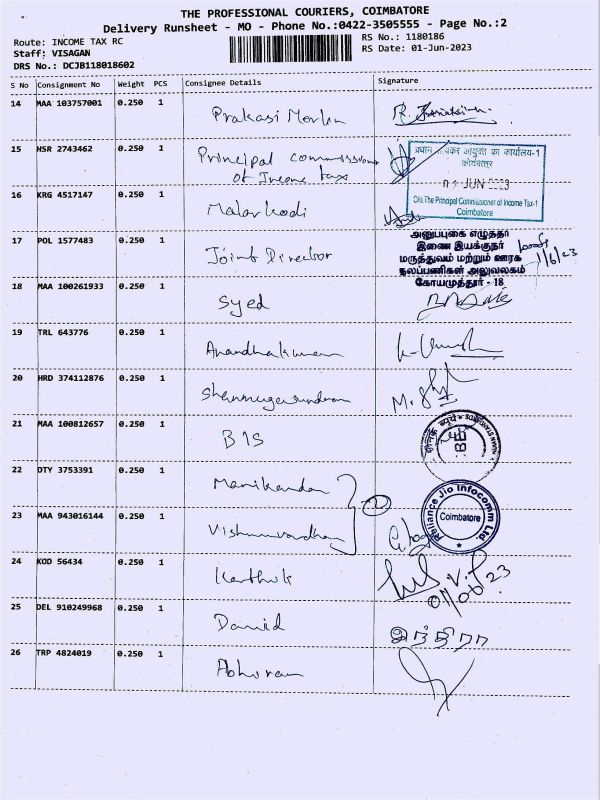 THE PROFESSIONAL COURIERS, COIMBATORE
Delivery Runsheet - MO - Phone No.:0422-3505555 - Page No.:2
Route: INCOME TAX RC
Staff: VISAGAN
DRS No.: DCJB118018602
RS No.: 1180186
RS Date: 01-Jun-2023
S No Consignment No Weight PCS Consignee Details Signature
14 MAA 103757001 0.250 1 Prakasi
15 HSR 2743462 0.250 1 Principal commissioner
of Income tax
प्रधान आयकर आयुक्त का कार्यालय-1
कोयंबत्तूर
01 JUN 2023
O/o.The Principal Commissioner of Income Tax-1
Coimbatore
16 KRG 4517147 0.250 1 Malarkodi
17 POL 1577483 0.250 1 Joint Director
அனுப்புகை எழுத்தர்
இணை இயக்குநர்
மருத்துவம் மற்றும் ஊரக
நலப்பணிகள் அலுவலகம்
கோயமுத்தூர் - 18
1/6/23
18 MAA 100261933 0.250 1 Syed
19 TRL 643776 0.250 1 Anandhakumar
20 HRD 374112876 0.250 1 Shanmugasundram
21 MAA 100812657 0.250 1 BIS
22 DTY 3753391 0.250 1 Manikandan
23 MAA 943016144 0.250 1 Vishnuvardhan
Reliance Jio Infocomm Ltd
Coimbatore
24 KOD 56434 0.250 1 Karthik
01/06/23
25 DEL 910249968 0.250 1 David இந்திரா
26 TRP 4824019 0.250 1